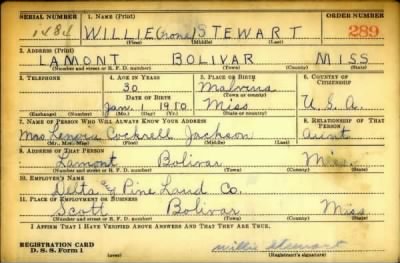 SERIAL NUMBER 1. NAME (Print) ORDER NUMBER
1484 WILLIE (none) STEWART 289
(First) (Middle) (Last)
2. ADDRESS (Print)
LAMONT BOLIVAR MISS
(Number and street or R. F. D. number) (Town) (County) (State)
3. TELEPHONE 4. AGE IN YEARS 5. PLACE OF BIRTH 6. COUNTRY OF CITIZENSHIP
30 Malvina
DATE OF BIRTH (Town or county)
Jan. 1 1910 Miss U.S.A.
(Exchange) (Number) (Mo.) (Day) (Yr.) (State or country)
7. NAME OF PERSON WHO WILL ALWAYS KNOW YOUR ADDRESS 8. RELATIONSHIP OF THAT PERSON
Mrs Lenora Cockrell Jackson Aunt
(Mr., Mrs., Miss) (First) (Middle) (Last)
9. ADDRESS OF THAT PERSON
Lamont Bolivar Miss.
(Number and street or R. F. D. number) (Town) (County) (State)
10. EMPLOYER'S NAME
Delta and Pine Land Co.
11. PLACE OF EMPLOYMENT OR BUSINESS
Scott Bolivar Miss
(Number and street or R. F. D. number) (Town) (County) (State)
I AFFIRM THAT I HAVE VERIFIED ABOVE ANSWERS AND THAT THEY ARE TRUE.
REGISTRATION CARD
D. S. S. Form 1 (over) Willie Stewart
(Registrant's signature)